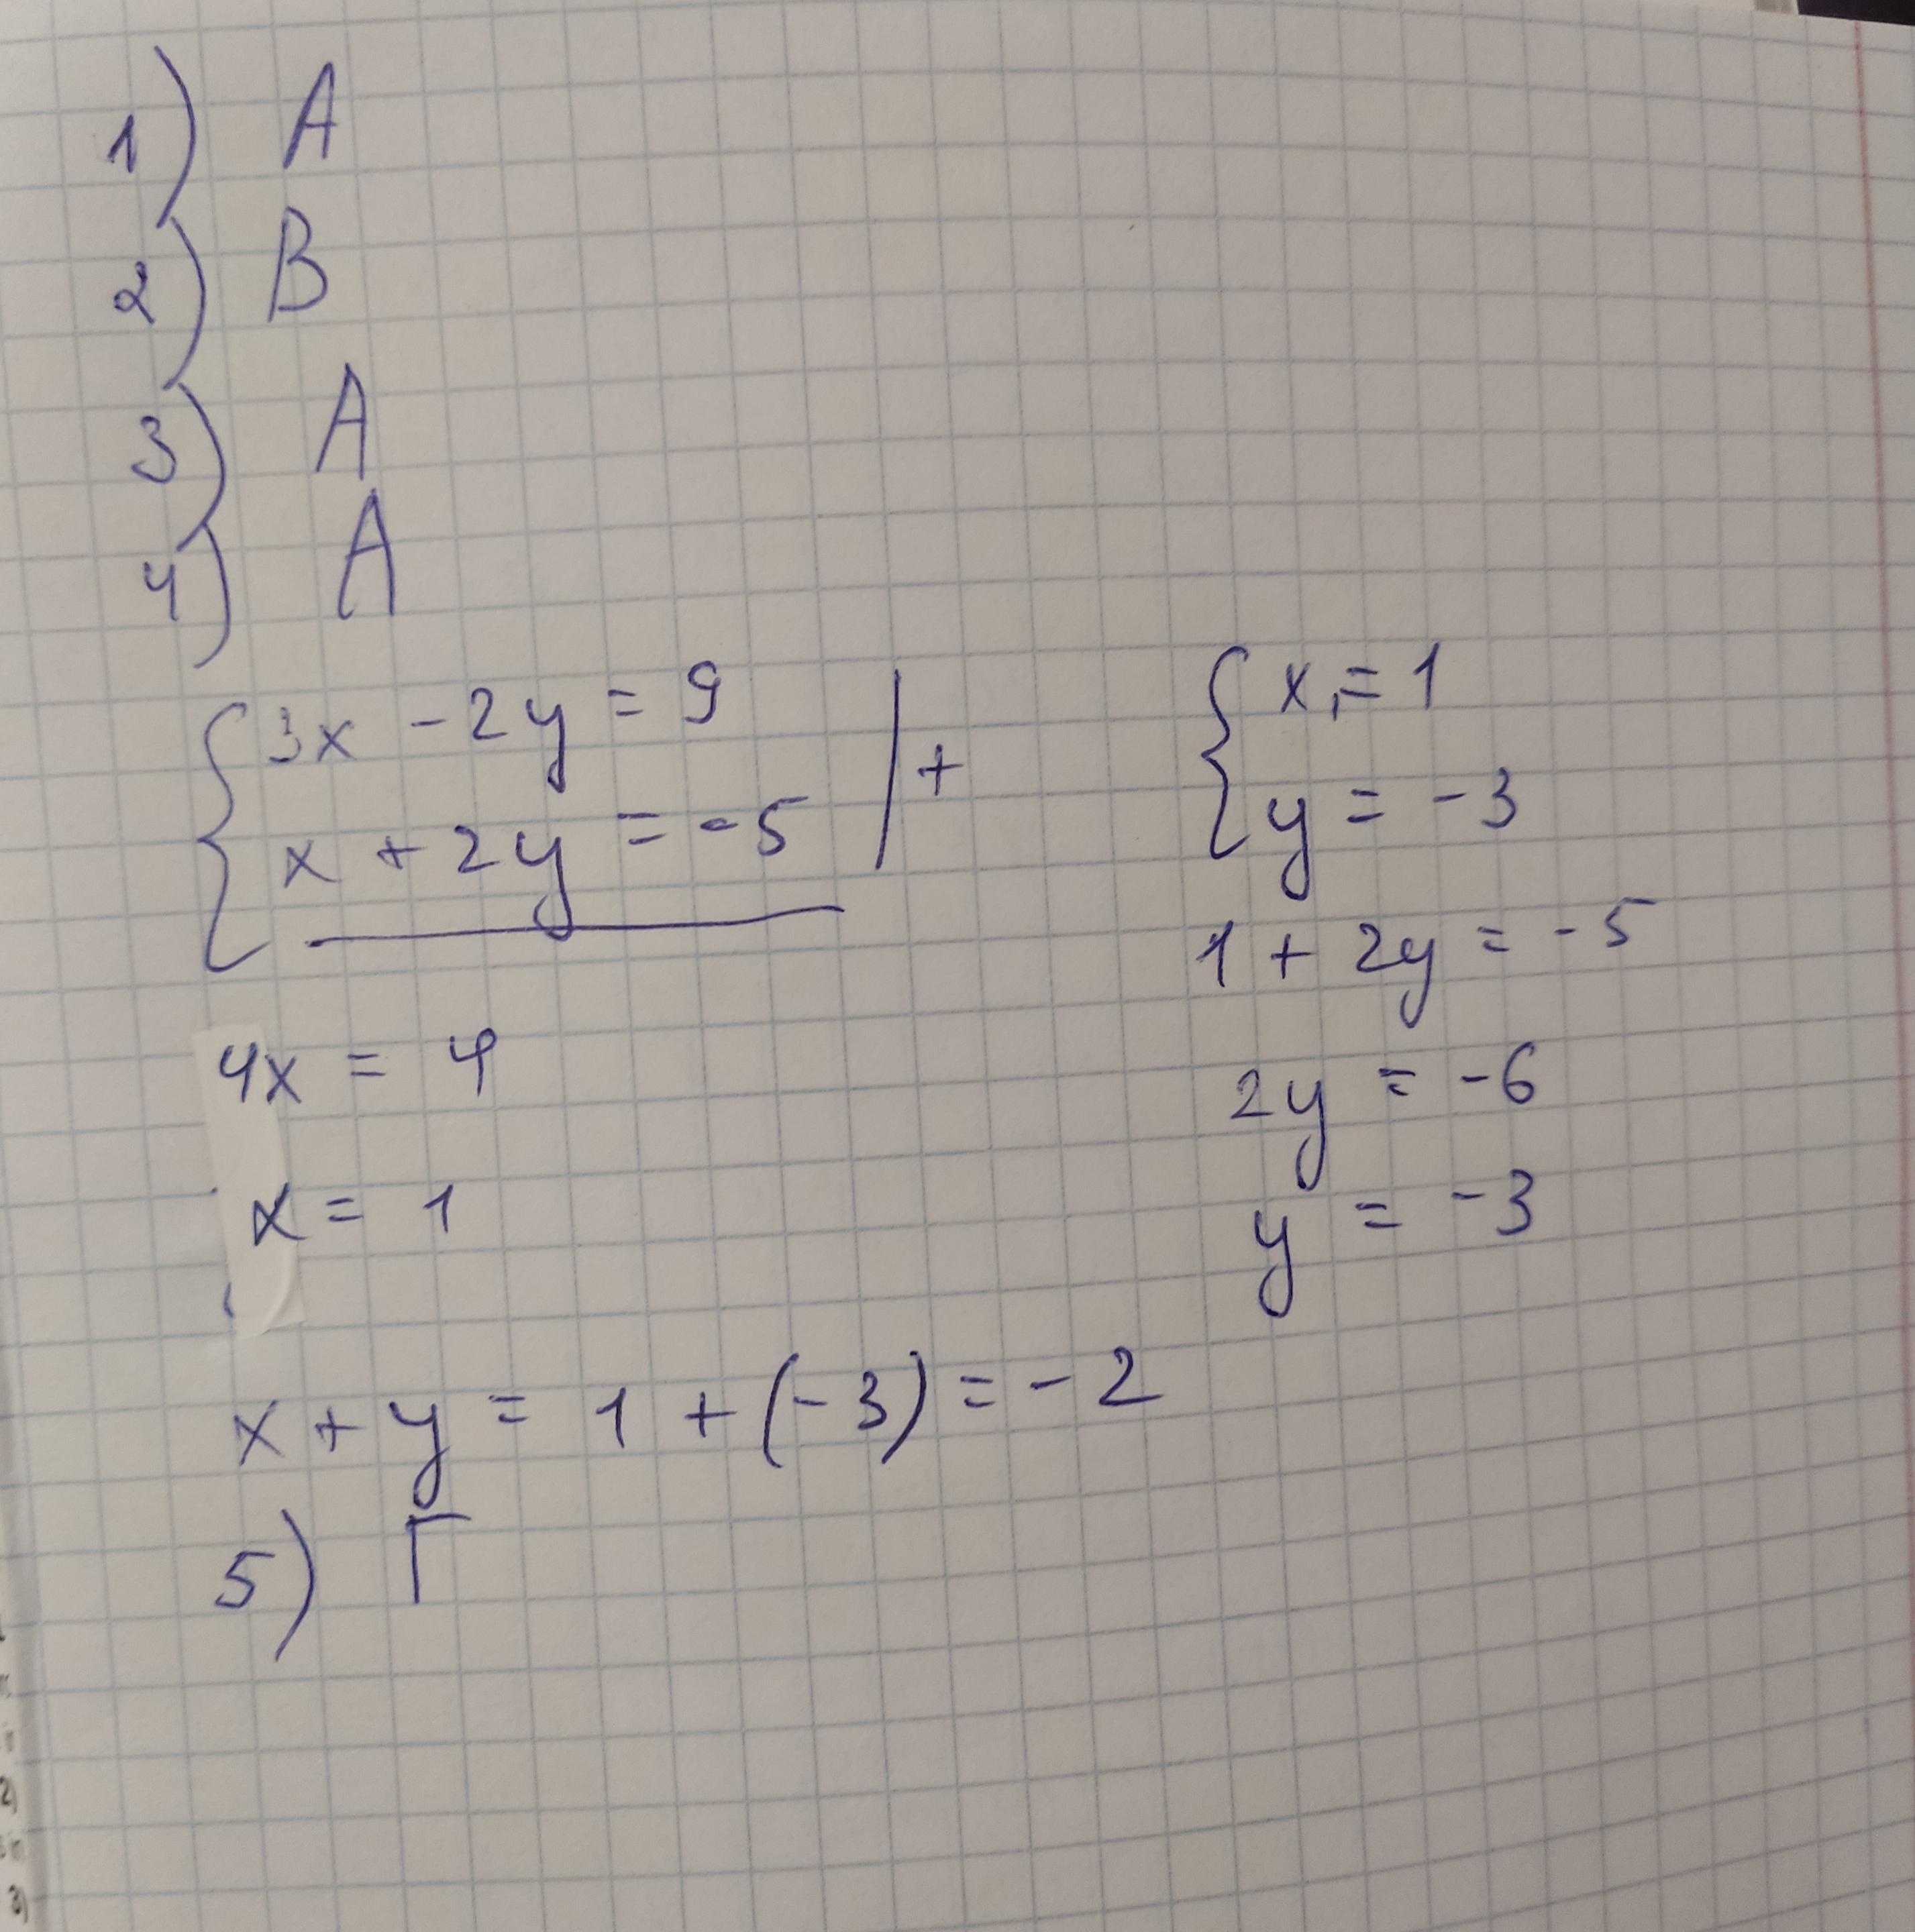 1) А
2) В
3) А
4) А
{3x - 2y = 9
x + 2y = -5 | +
4x = 4
x = 1
{x = 1
y = -3
1 + 2y = -5
2y = -6
y = -3
x + y = 1 + (-3) = -2
5) Г
2)
3)